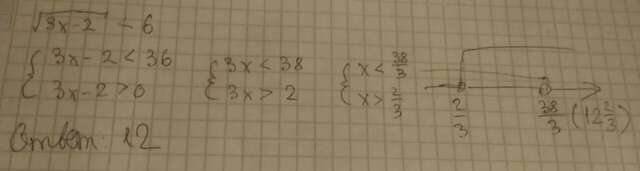 √3x-2 - 6
{ 3x - 2 < 36
3x - 2 > 0
{ 3x < 38
3x > 2
{ x < 38/3
x > 2/3
2/3 38/3 (12 2/3)
Ответ: 12